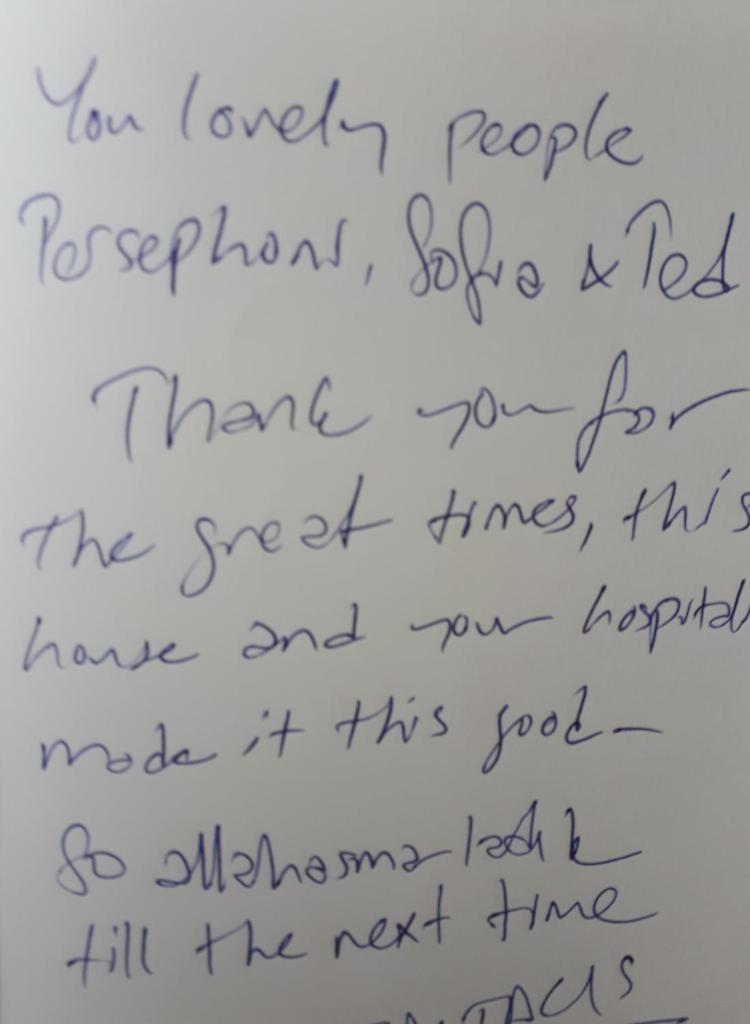 You lovely people
Persephoni, Sofia & Ted
Thank you for
the great times, this
house and your hospital
made it this good-
So allahasmaladik
till the next time